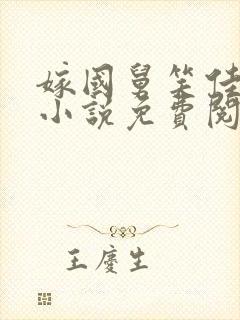 嫁國舅笑佳
小說免費閱
王慶生